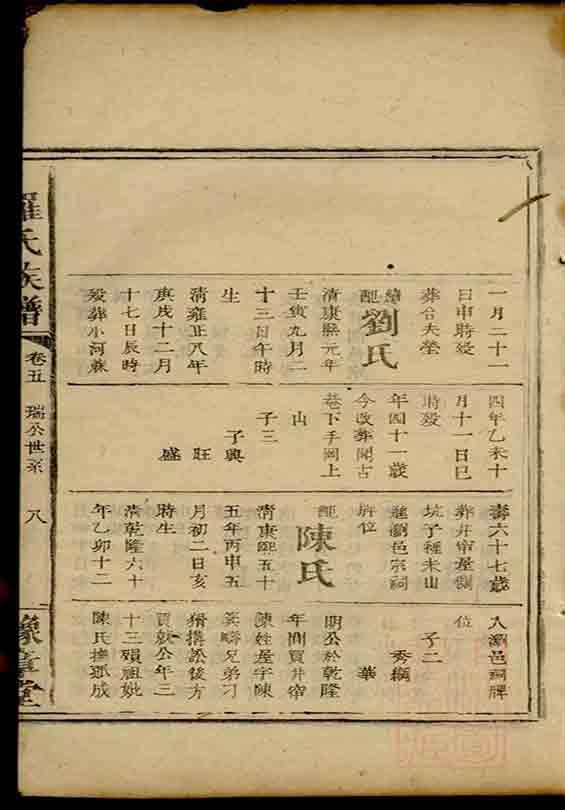 一月二十一
日申時殁
葬合夫塋
繼配劉氏
清康熙元年
壬寅九月二
十三日午時
生
清雍正八年
庚戌十二月
十七日辰時
殁葬小河
四年乙未十
月十一日巳
時殁
年四十一歲
今改葬開古
巷下手岡上
山
子三
子興
旺
盛
壽六十七歲
葬井窄屋側
坑子種未山
進瀏邑宗祠
牌位
配陳氏
清康熙五十
五年丙申五
月初二日亥
時生
清乾隆六十
年乙卯十二
入瀏邑祠牌
位
子二
秀綱
華
明公於乾隆
年間買井窄
陳姓屋字陳
英疇兄弟刁
猾搆訟後方
賈就公年三
十三殞祖妣
陳氏撫孤成
羅氏族譜
卷五
瑞公世系
八
豫章堂